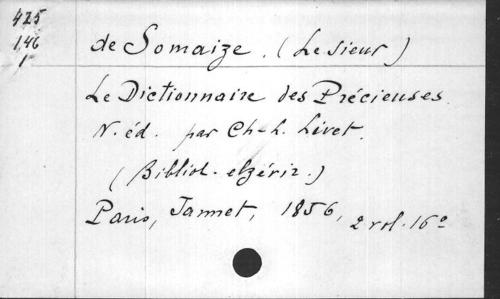 425
146
1
de Somaize. (Le sieur)
Le Dictionnaire des Précieuses.
N. éd. par Ch-L. Livet.
(Bibliot. elzévir.)
Paris, Jannet, 1856, 2 vol. 16º